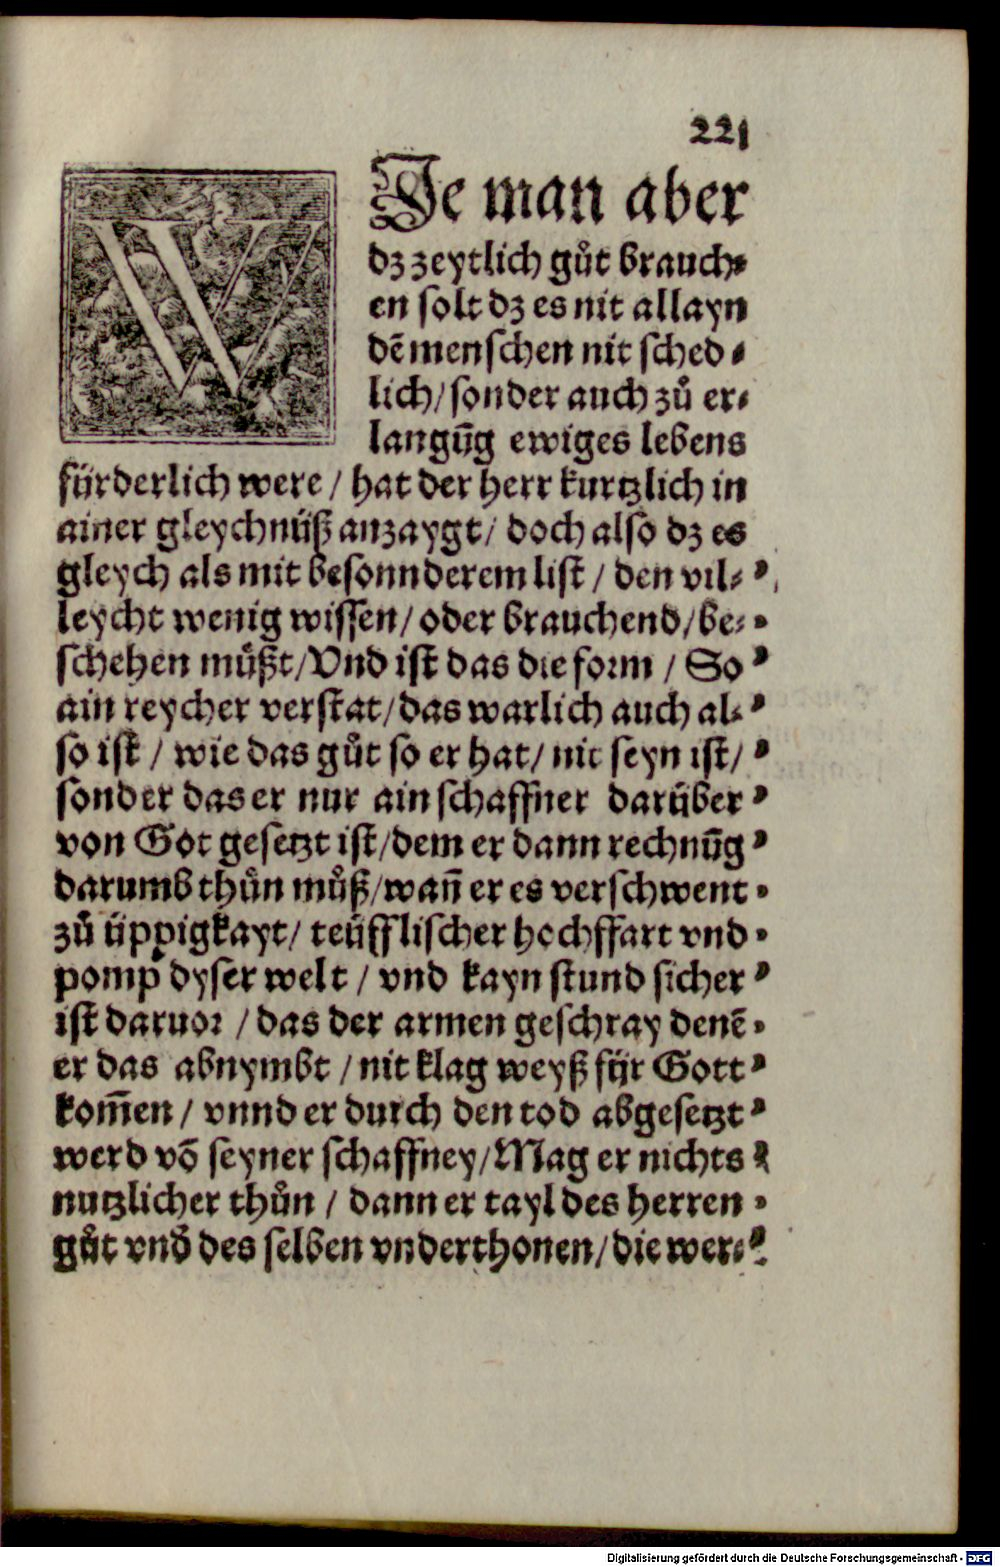 221
WJe man aber
dz zeytlich gůt brauch⸗
en solt dz es nit allayn
dē menschen nit sched⸗
lich/ sonder auch zů er⸗
langūg ewiges lebens
fürderlich were / hat der herr kurtzlich in
ainer gleychnüß anzaygt/ doch also dz es
gleych als mit besonnderem list / den vil⸗
leycht wenig wissen/ oder brauchend/ be⸗
schehen můßt/ Vnd ist das die form / So
ain reycher verstat/ das warlich auch al⸗
so ist / wie das gůt so er hat/ nit seyn ist/
sonder das er nur ain schaffner darüber
von Got gesetzt ist/ dem er dann rechnūg
darumb thůn můß/ wañ er es verschwent
zů üppigkayt/ teüfflischer hochffart vnd
pomp dyser welt / vnd kayn stund sicher
ist daruor / das der armen geschray denē
er das abnymbt / nit klag weyß für Gott
kom̄en / vnnd er durch den tod abgesetzt
werd vō seyner schaffney/ Mag er nichts
nutzlicher thůn / dann er tayl des herren
gůt vnd des selben vnderthonen/ die wer⸗
Digitalisierung gefördert durch die Deutsche Forschungsgemeinschaft - DFG